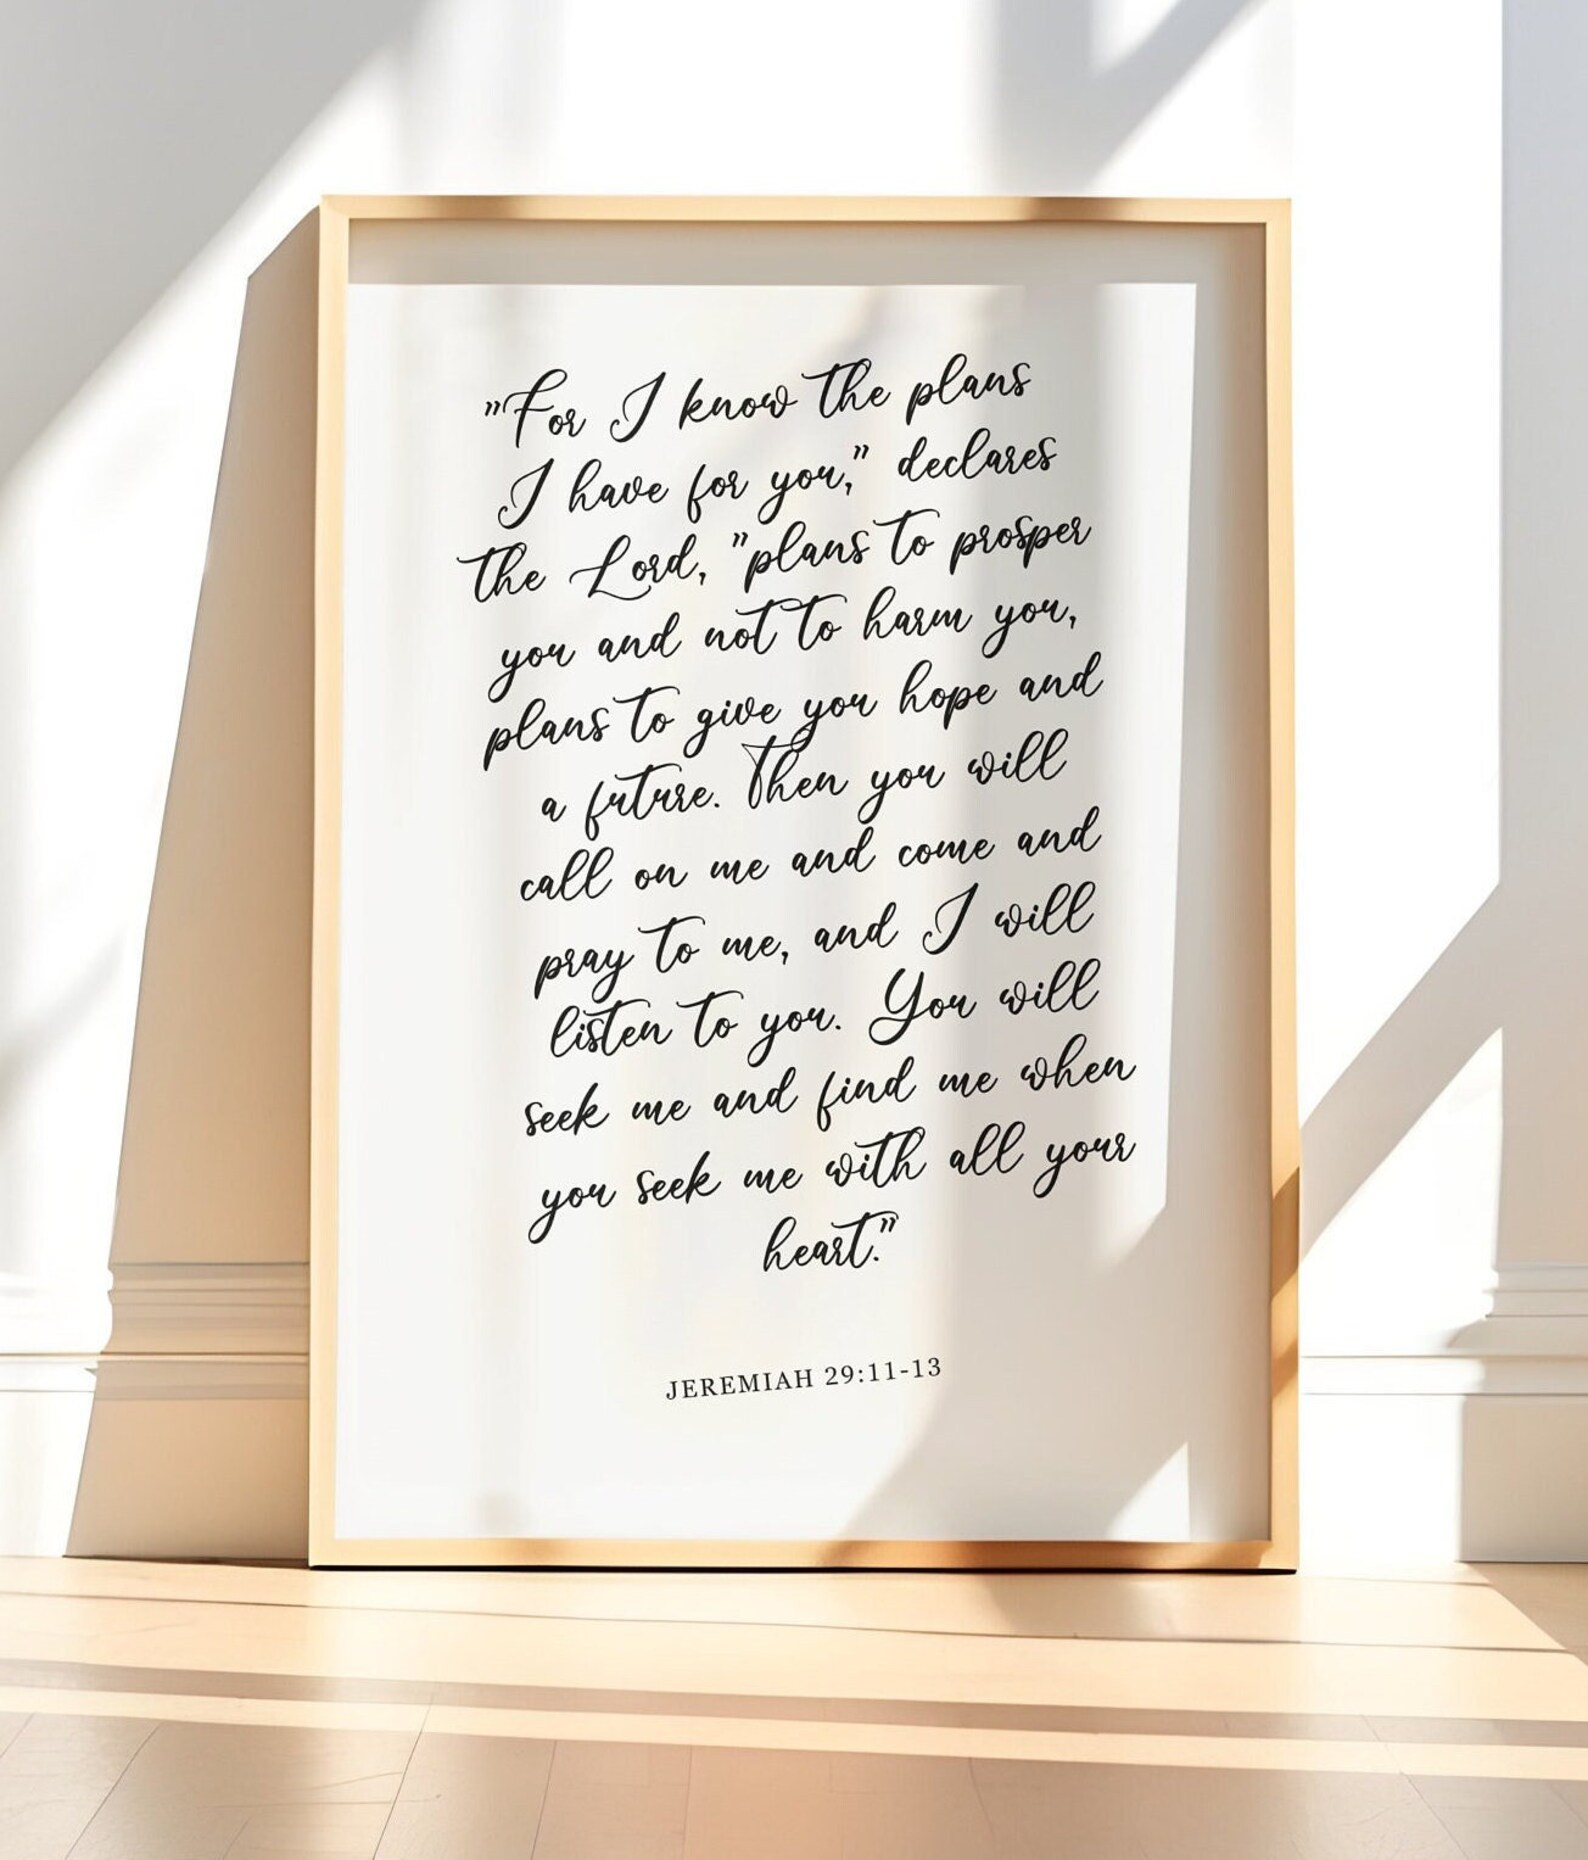 "For I know the plans
I have for you," declares
the Lord, "plans to prosper
you and not to harm you,
plans to give you hope and
a future. Then you will
call on me and come and
pray to me, and I will
listen to you. You will
seek me and find me when
you seek me with all your
heart."
JEREMIAH 29:11-13